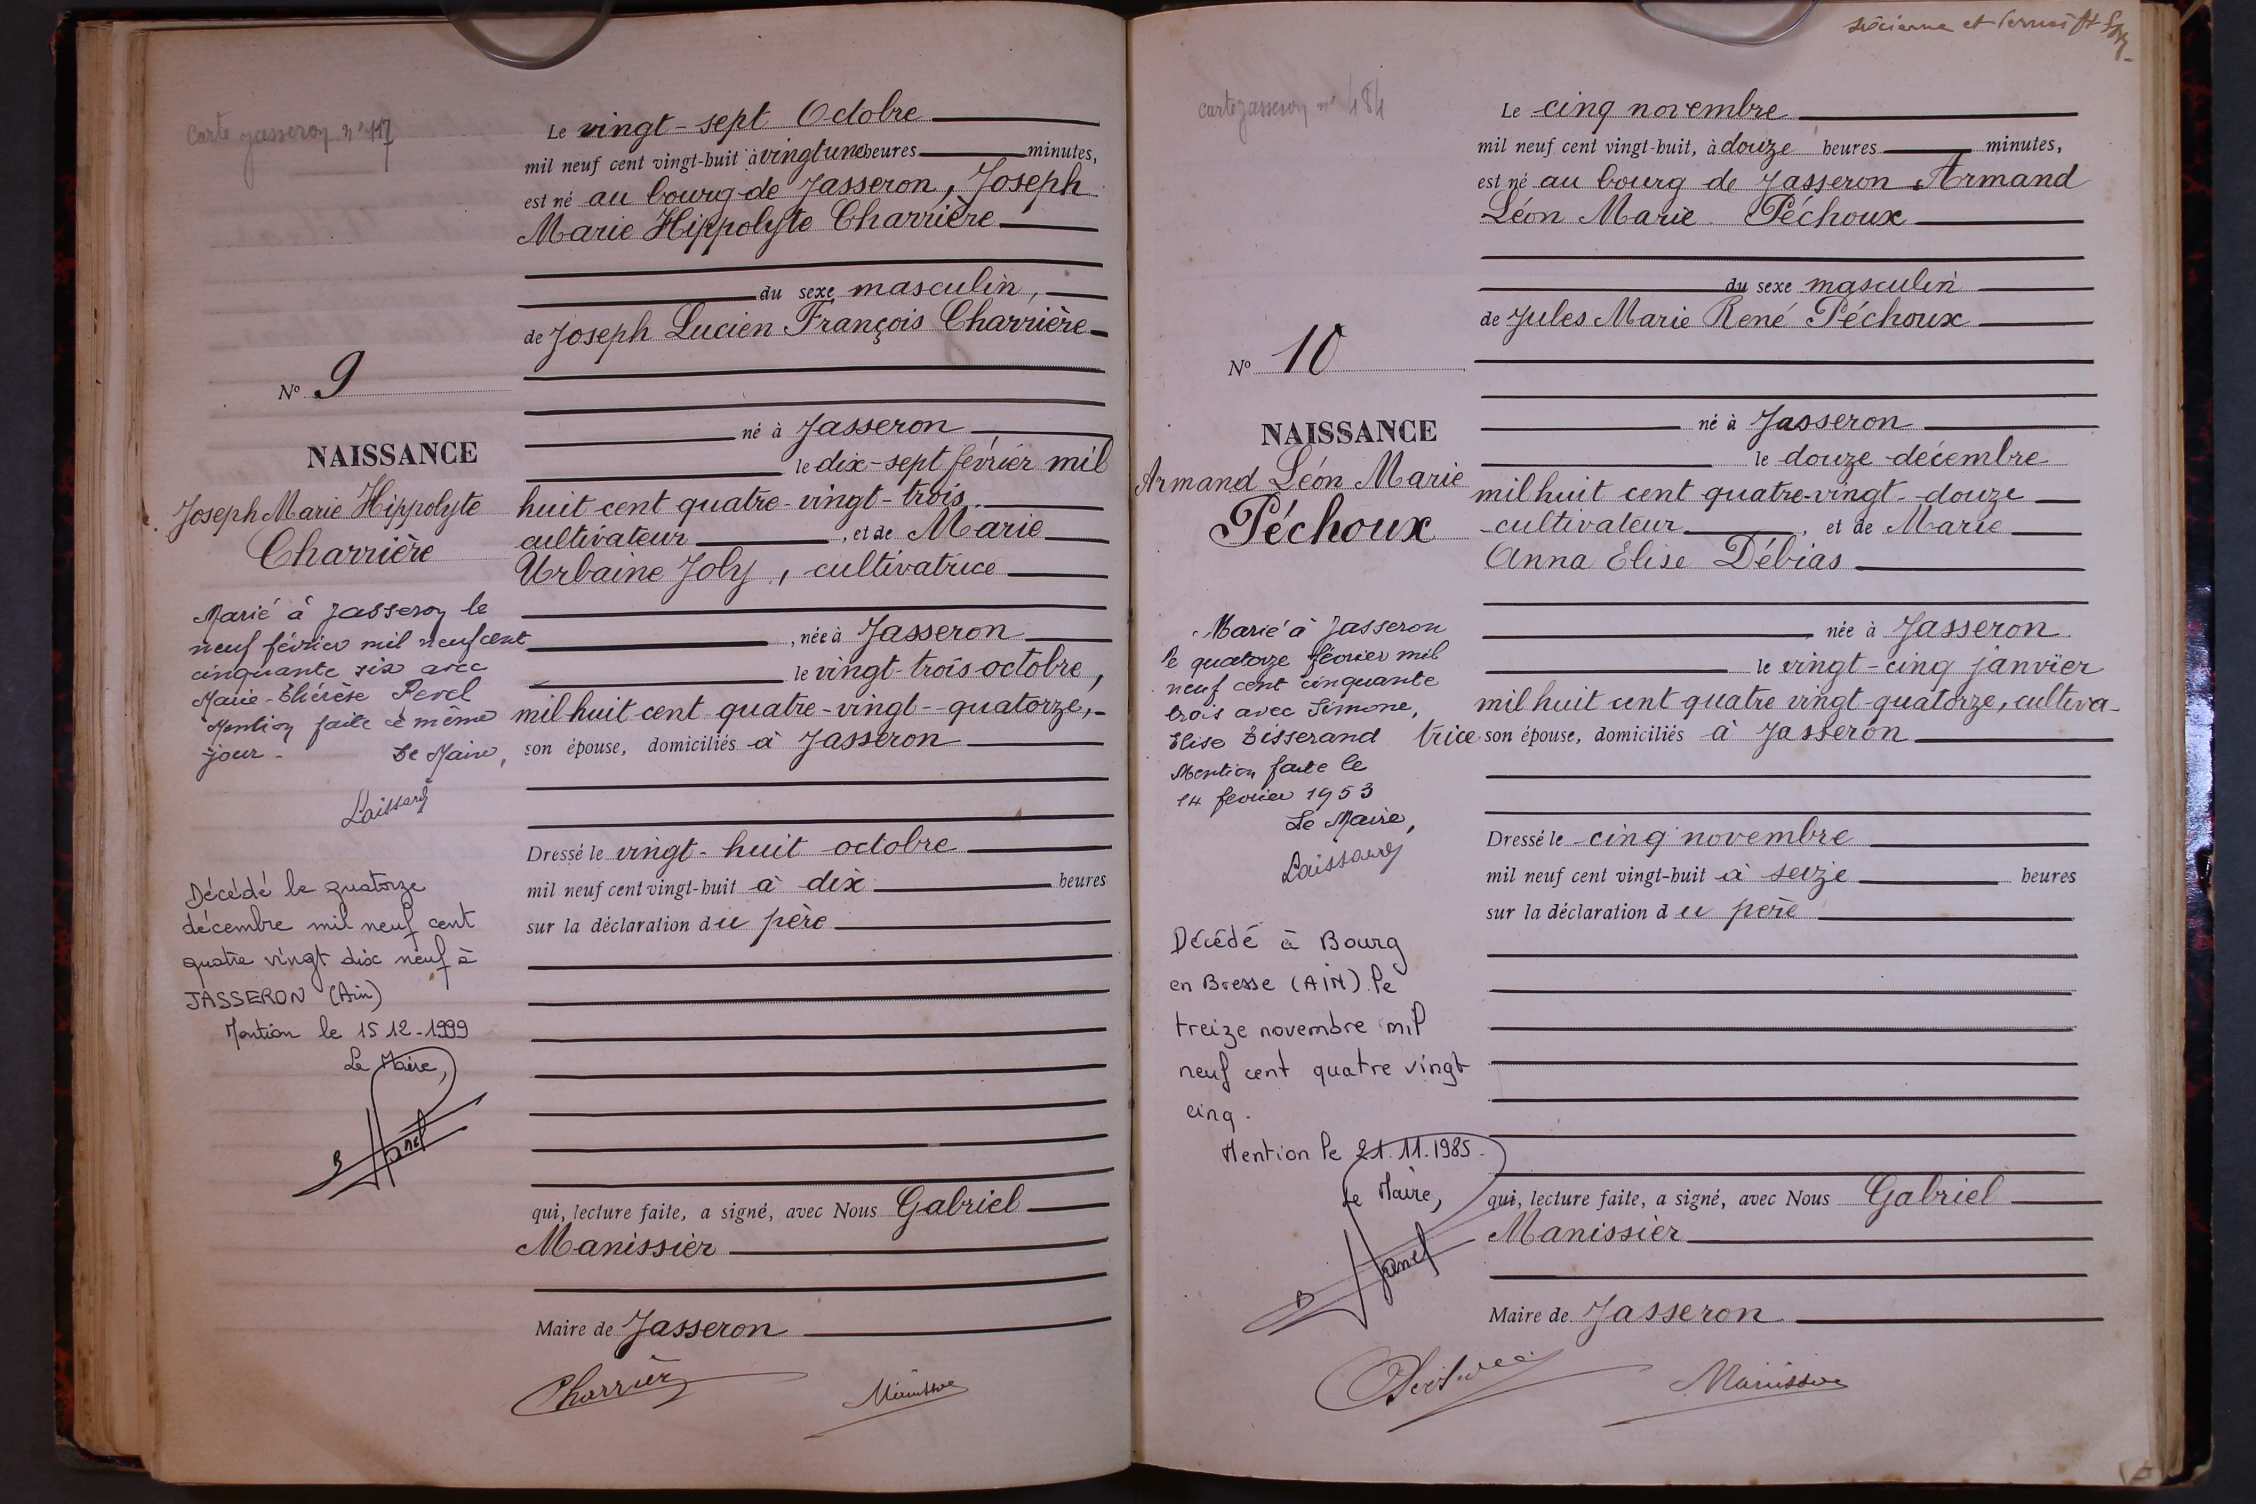 Carte Jasseron n° 117
Le vingt-sept Octobre
mil neuf cent vingt-huit à vingt une heures minutes,
est né au bourg de Jasseron, Joseph
Marie Hippolyte Charrière
du sexe masculin,
de Joseph Lucien François Charrière
N° 9
né à Jasseron
NAISSANCE
le dix-sept février mil
Joseph Marie Hippolyte
Charrière
huit cent quatre-vingt-trois
cultivateur, et de Marie
Urbaine Joly, cultivatrice
, née à Jasseron
le vingt-trois octobre,
mil huit cent quatre-vingt-quatorze,
son épouse, domiciliés à Jasseron
Marié à Jasseron le
neuf février mil neuf cent
cinquante six avec
Marie-Thérèse Revel
Mention faite ce même
jour.
Le Maire,
Dressé le vingt-huit octobre
mil neuf cent vingt-huit à dix heures
sur la déclaration du père
Décédé le quatorze
décembre mil neuf cent
quatre vingt dix neuf à
JASSERON (Ain)
Mention le 15 12-1999
Le Maire,
qui, lecture faite, a signé, avec Nous Gabriel
Manissier
Maire de Jasseron
Charrière
carte Jasseron n° 184
Le cinq novembre
mil neuf cent vingt-huit, à douze heures minutes,
est né au bourg de Jasseron Armand
Léon Marie Péchoux
du sexe masculin
de Jules Marie René Péchoux
N° 10
né à Jasseron
NAISSANCE
le douze décembre
Armand Léon Marie
Péchoux
mil huit cent quatre-vingt-douze
cultivateur, et de Marie
Anna Elise Débias
née à Jasseron
le vingt-cinq janvier
mil huit cent quatre vingt-quatorze, cultiva-
trice son épouse, domiciliés à Jasseron
Marié à Jasseron
le quatorze février mil
neuf cent cinquante
trois avec Simone,
Elise Tisserand
Mention faite le
14 février 1953
Le Maire,
Dressé le cinq novembre
mil neuf cent vingt-huit à seize heures
sur la déclaration du père
Décédé à Bourg
en Bresse (AIN) le
treize novembre mil
neuf cent quatre vingt
cinq.
Mention le 21.11.1985.
Le Maire,
qui, lecture faite, a signé, avec Nous Gabriel
Manissier
Maire de Jasseron